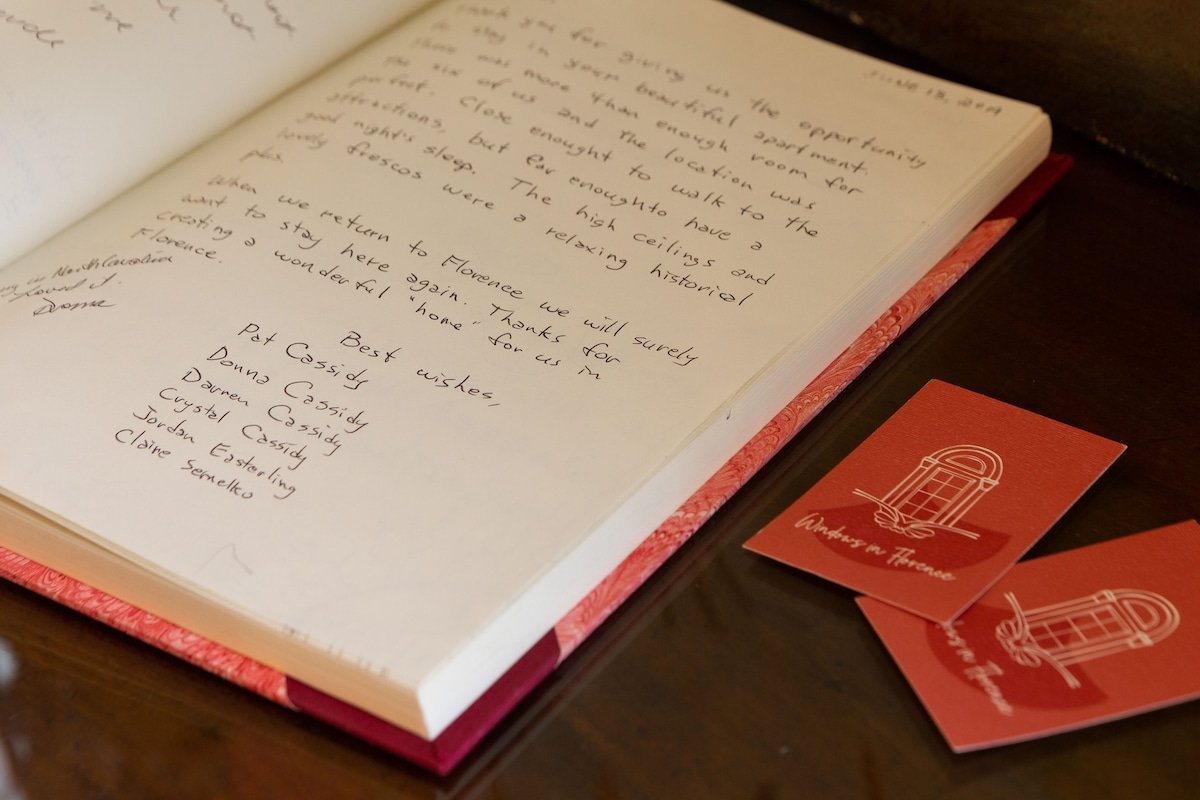 JUNE 13, 2019
Thank you for giving us the opportunity
to stay in your beautiful apartment.
There was more than enough room for
the six of us and the location was
perfect. Close enought to walk to the
attractions, but far enoughto have a
good night's sleep. The high ceilings and
lovely frescos were a relaxing historical
plus
When we return to Florence we will surely
want to stay here again. Thanks for
creating a wonderful "home" for us in
Florence.
Best wishes,
Pat Cassidy
Donna Cassidy
Darren Cassidy
Crystal Cassidy
Jordan Easterling
Claire Semelko
in North Carolina
Loved it.
Donna
Windows in Florence
Windows in Florence